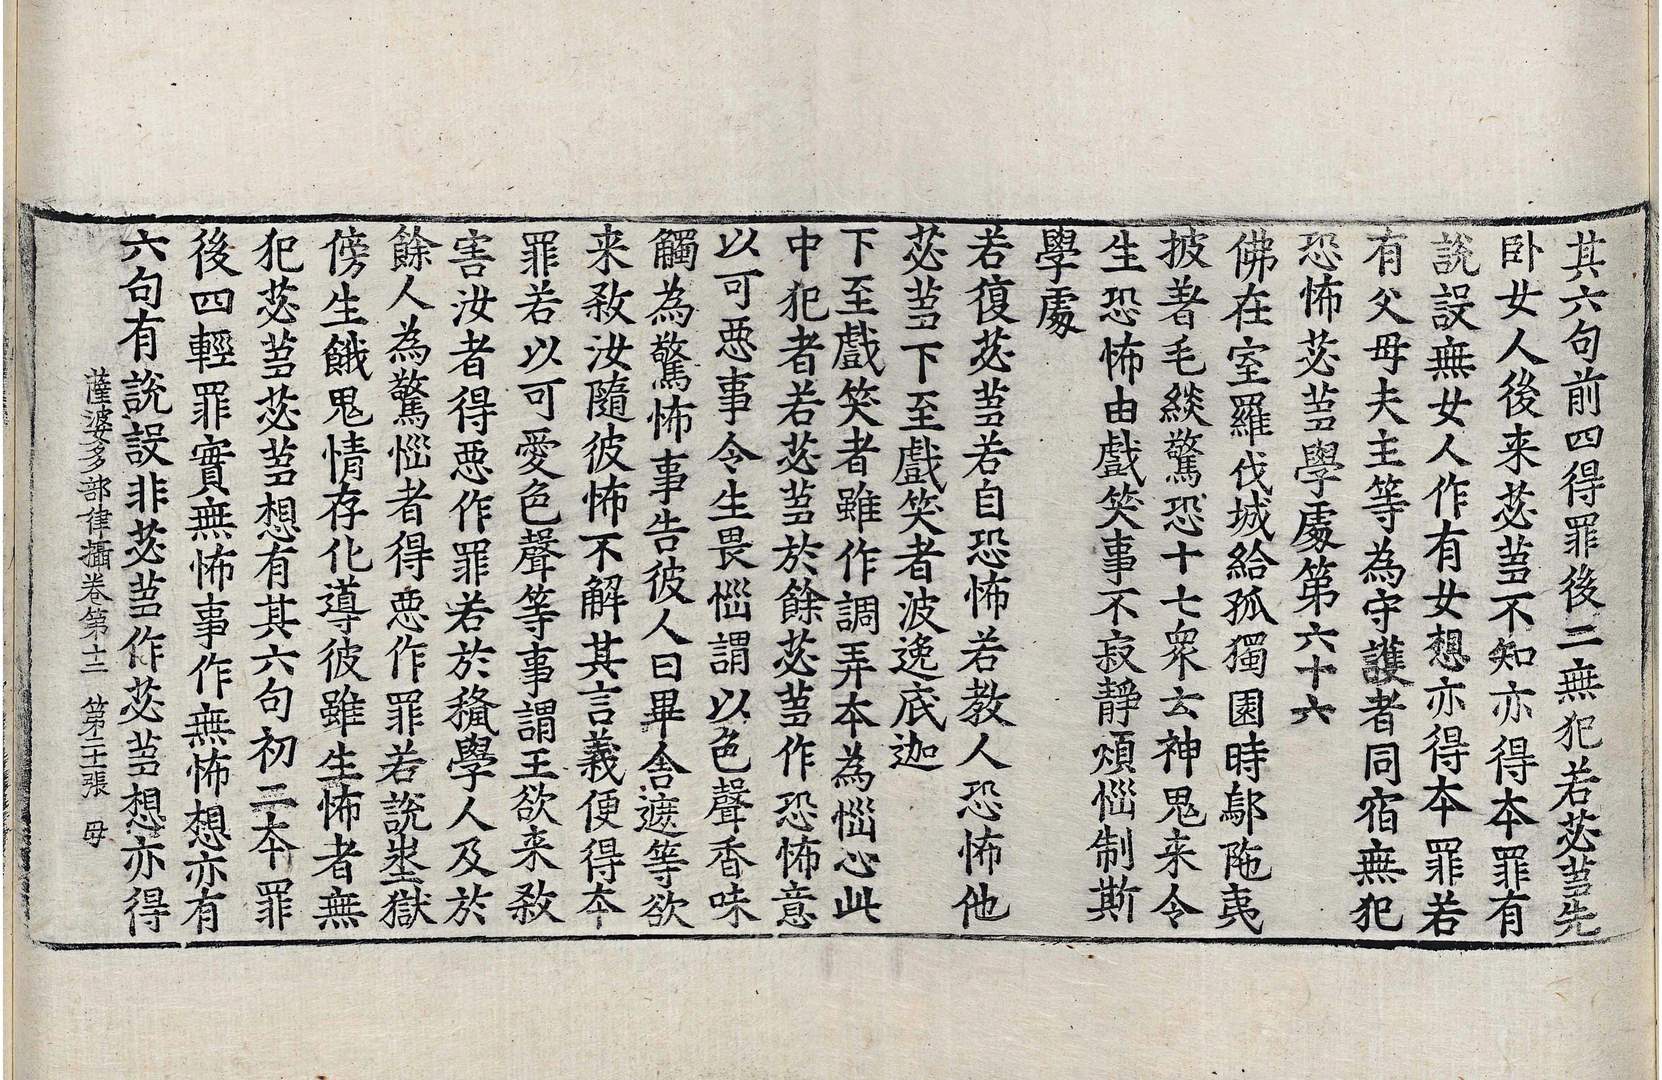 其六句前四得罪後二無犯若苾芻先
卧女人後来苾芻不知亦得本罪有
說設無女人作有女想亦得本罪若
有父母夫主等為守護者同宿無犯
恐怖苾芻學處第六十六
佛在室羅伐城給孤獨園時鄔陁夷
披著毛緂驚恐十七衆云神鬼来令
生恐怖由戲笑事不寂靜煩惱制斯
學處
若復苾芻若自恐怖若教人恐怖他
苾芻下至戲笑者波逸底迦
下至戲笑者雖作調弄本為惱心此
中犯者若苾芻於餘苾芻作恐怖意
以可惡事令生畏惱謂以色聲香味
觸為驚怖事告彼人曰畢舍遮等欲
来殺汝隨彼怖不解其言義便得本
罪若以可愛色聲等事謂王欲来殺
害汝者得惡作罪若於種學人及於
餘人為驚惱者得惡作罪若說地獄
傍生餓鬼情存化導彼雖生怖者無
犯苾芻苾芻想有其六句初二本罪
後四輕罪實無怖事作無怖想亦有
六句有說設非苾芻作苾芻想亦得
薩婆多部律攝卷第十二 第二十張 毋